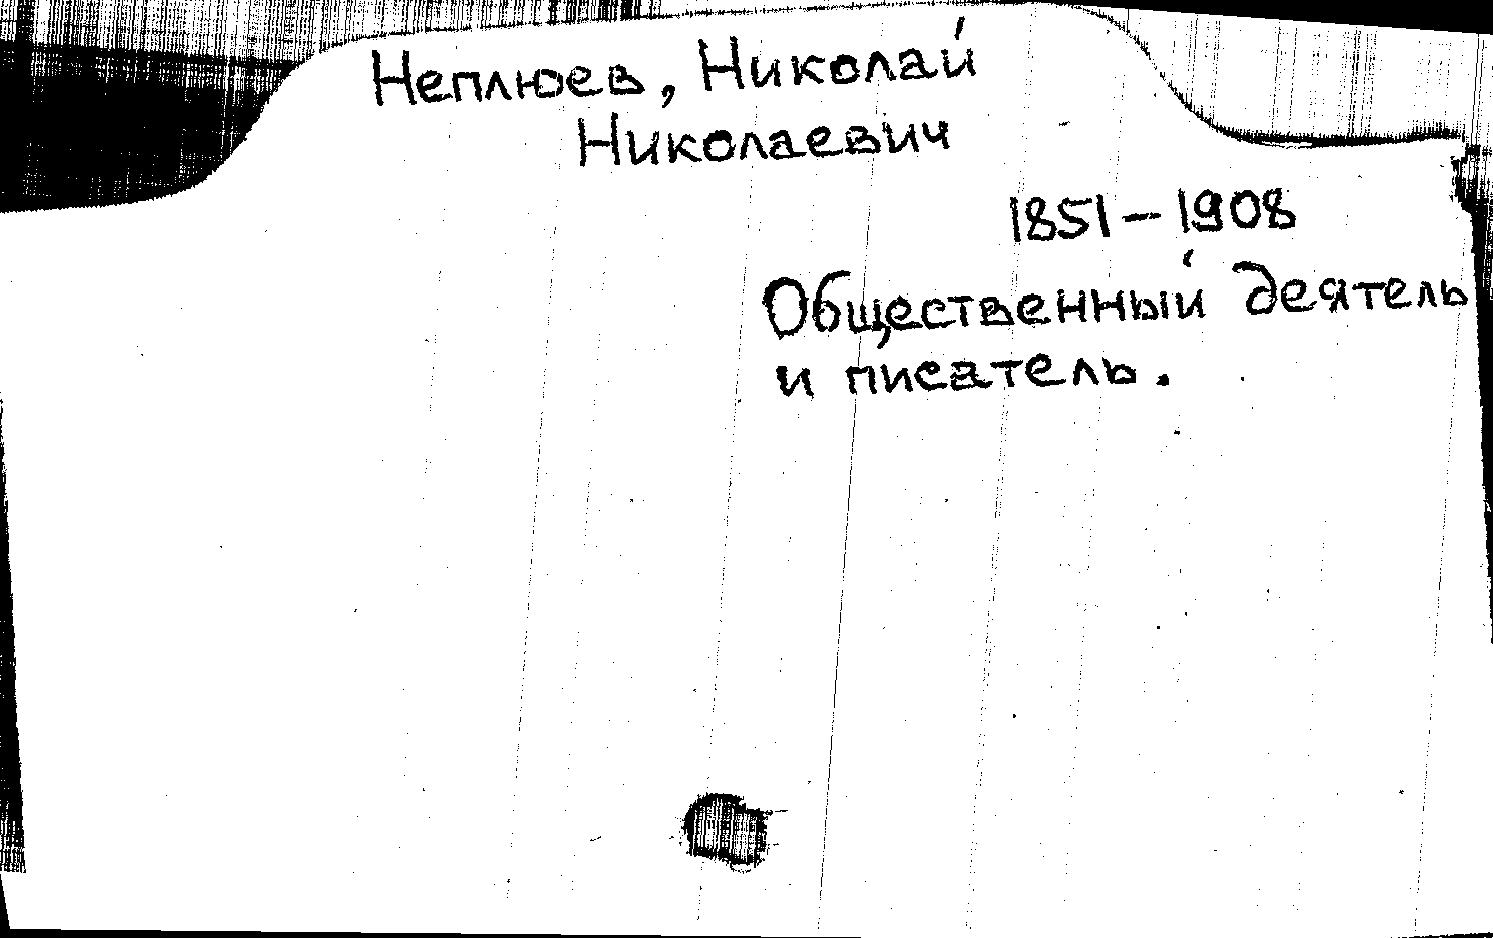 Неплюев, Николай
Николаевич
1851–1908
Общественный деятель
и писатель.